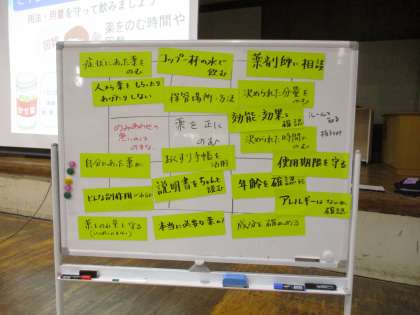 用法・用量を守って飲みましょう
薬をのむ時間や
回数
症状にあった薬を
のむ
コップ一杯の水で
飲む
薬剤師に相談
人から薬をもらったり
わけたりしない
保管場所・方法
決められた分量を
のむ
効能・効果を
確認
のみあわせの
薬を正しく
のむ
決められた時間に
のむ
自分にあった薬か
おくすり手帳を
活用
使用期限を守る
どんな副作用があるか
説明書をちゃんと
読む
年齢を確認
アレルギーはないか
確認
本当に必要な薬か
成分を確かめる